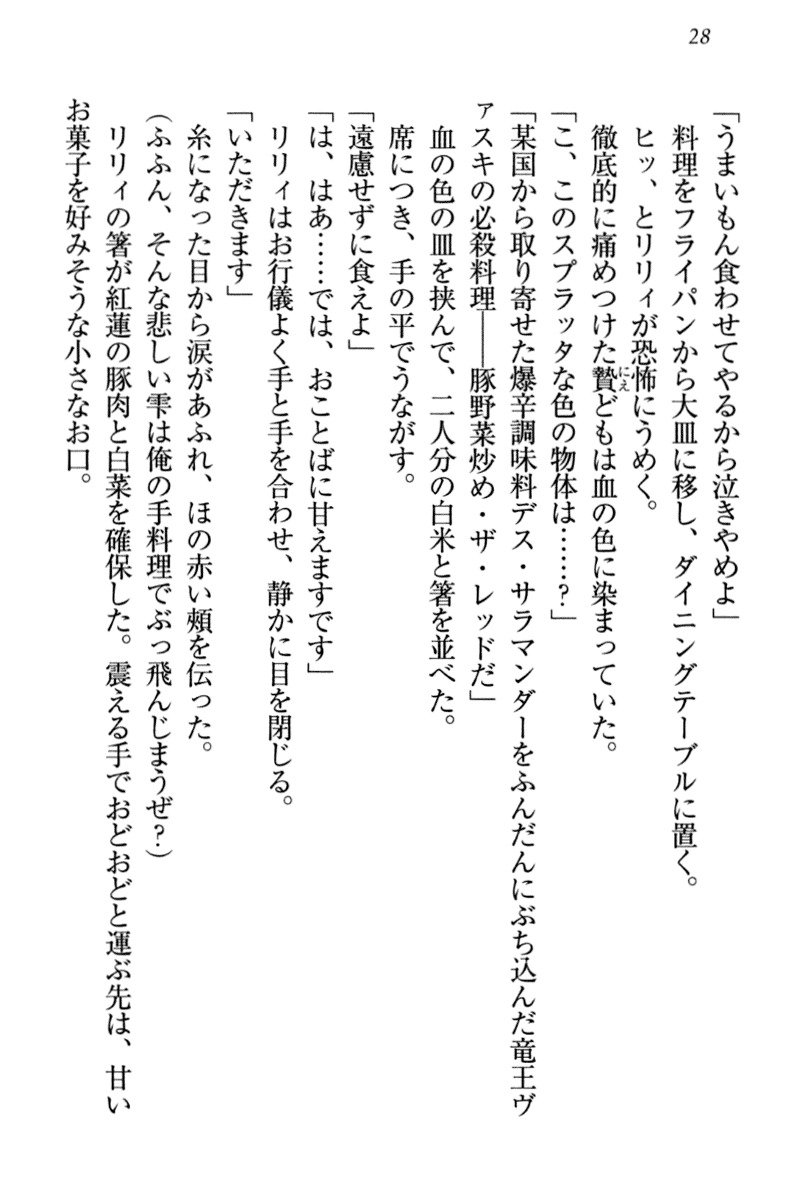 28
「うまいもん食わせてやるから泣きやめよ」
料理をフライパンから大皿に移し、ダイニングテーブルに置く。
ヒッ、とリリィが恐怖にうめく。
徹底的に痛めつけた贄どもは血の色に染まっていた。
にえ
「こ、このスプラッタな色の物体は……？」
「某国から取り寄せた爆辛調味料デス・サラマンダーをふんだんにぶち込んだ竜王ヴ
ァスキの必殺料理――豚野菜炒め・ザ・レッドだ」
血の色の皿を挟んで、二人分の白米と箸を並べた。
席につき、手の平でうながす。
「遠慮せずに食えよ」
「は、はあ……では、おことばに甘えますです」
リリィはお行儀よく手と手を合わせ、静かに目を閉じる。
「いただきます」
糸になった目から涙があふれ、ほの赤い頬を伝った。
（ふふん、そんな悲しい雫は俺の手料理でぶっ飛んじまうぜ？）
リリィの箸が紅蓮の豚肉と白菜を確保した。震える手でおどおどと運ぶ先は、甘い
お菓子を好みそうな小さなお口。